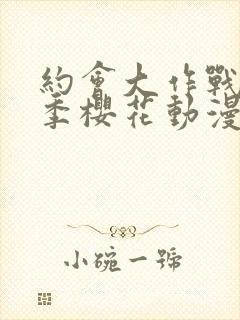 約會大作戰
季櫻花動漫
小碗一號